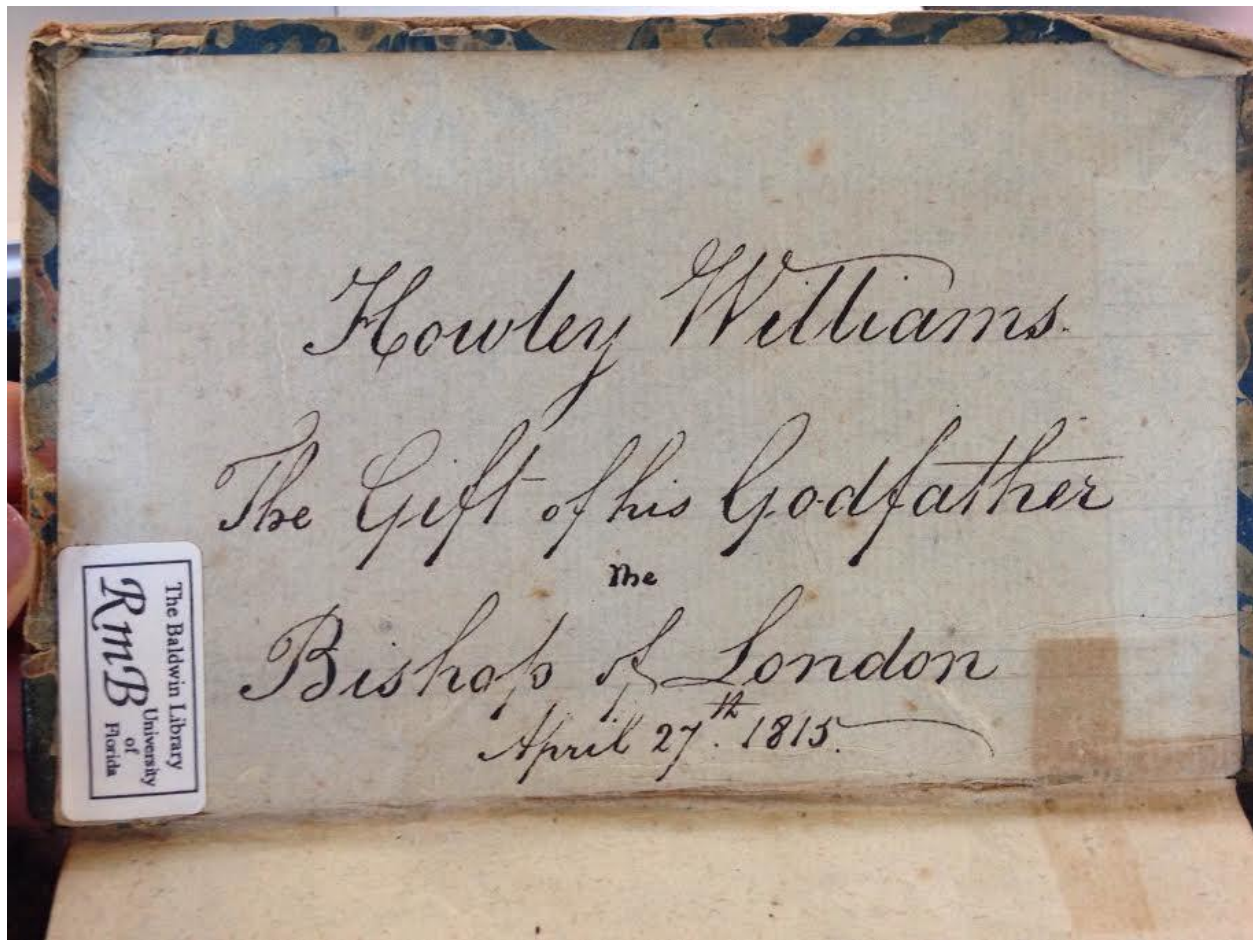 Howley Williams.
The Gift of his Godfather
the
Bishop of London
April 27th. 1815.
The Baldwin Library
RmB
University
of
Florida